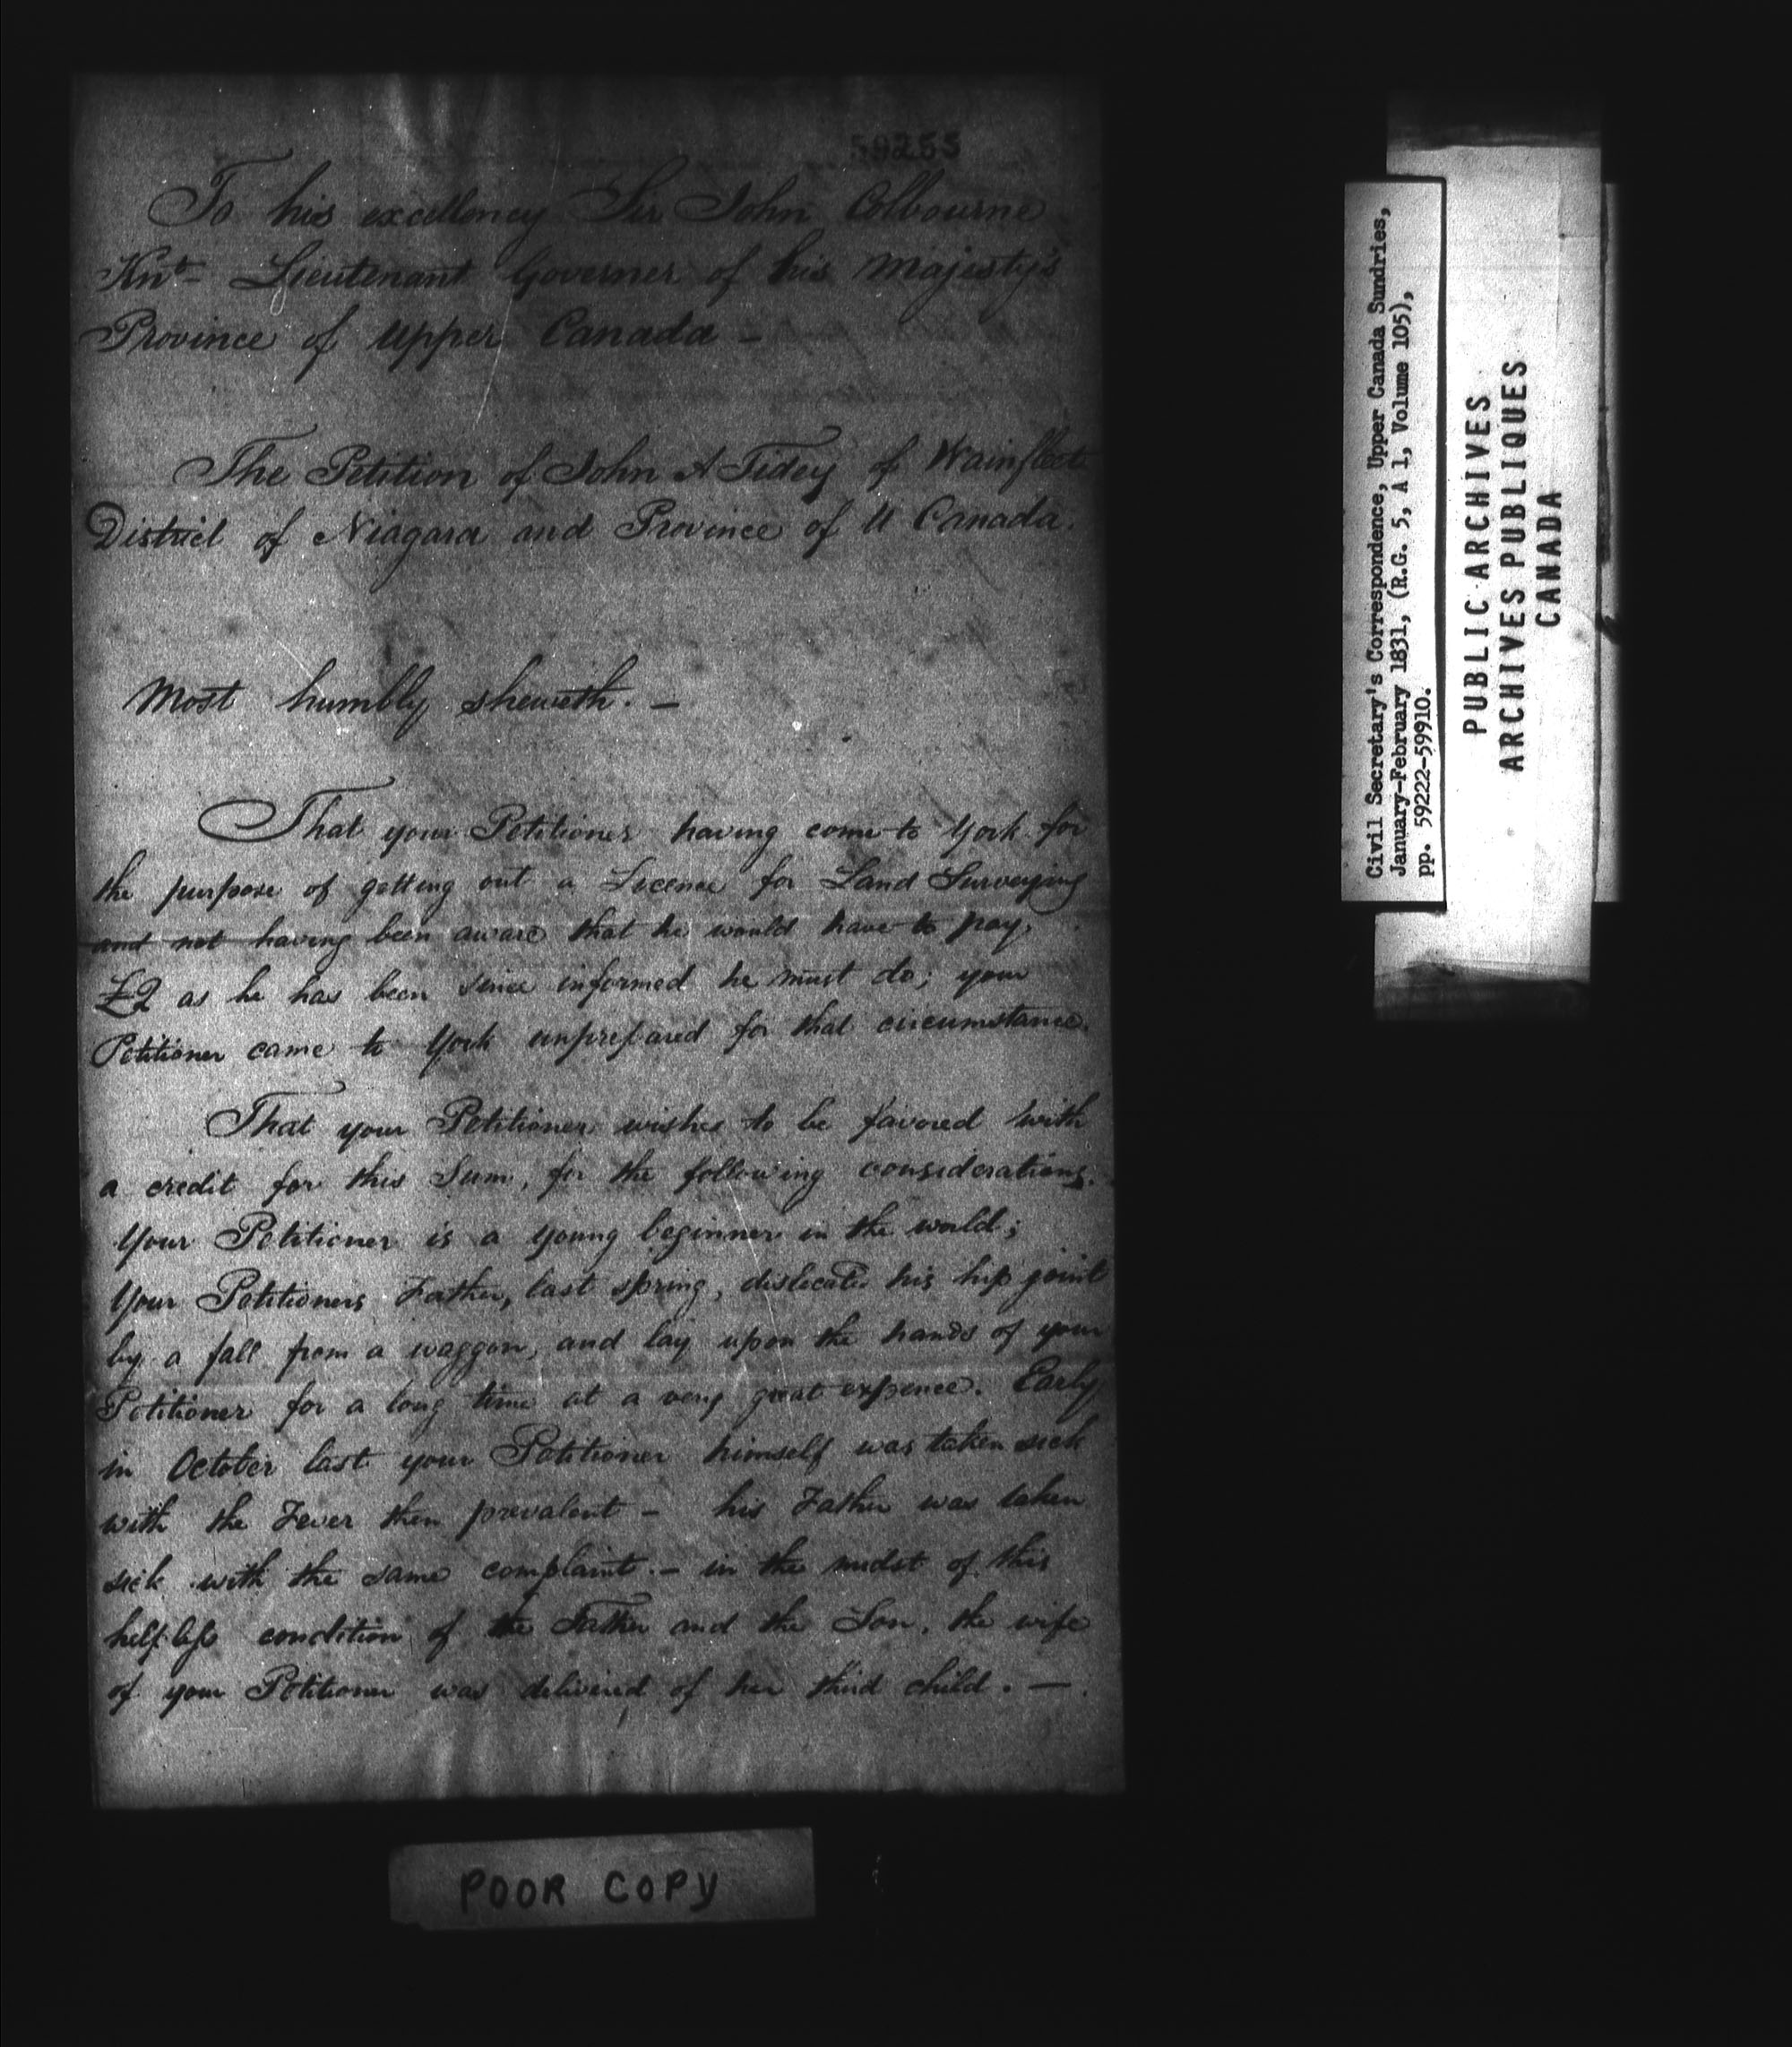 59255
To his excellency Sir John Colbourne
Knt- Lieutenant Governer of his Majesty's
Province of Upper Canada -
The Petition of John A Tidey of Wainfleet
District of Niagara and Province of U Canada.
Most humbly sheweth. -
That your Petitioner having come to York for
the purpose of getting out a Licence for Land Surveying
and not having been aware that he would have to pay,
£2 as he has been since informed he must do; your
Petitioner came to York unprepared for that circumstance.
That your Petitioner wishes to be favored with
a credit for this Sum, for the following considerations.
Your Petitioner is a young beginner in the world;
Your Petitioners Father, last spring, dislocate his hip joint
by a fall from a waggon, and lay upon the hands of your
Petitioner for a long time at a very great expence. Early
in October last your Petitioner himself was taken sick
with the Fever then prevalent - his Father was taken
sick with the same complaint. - in the midst of this
helpless condition of the Father and the Son, the wife
of your Petitioner was delivered of her third child. -
POOR COPY
Civil Secretary's Correspondence, Upper Canada Sundries,
January-February 1831, (R.G. 5, A 1, Volume 105),
pp. 59222-59910.
PUBLIC ARCHIVES
ARCHIVES PUBLIQUES
CANADA